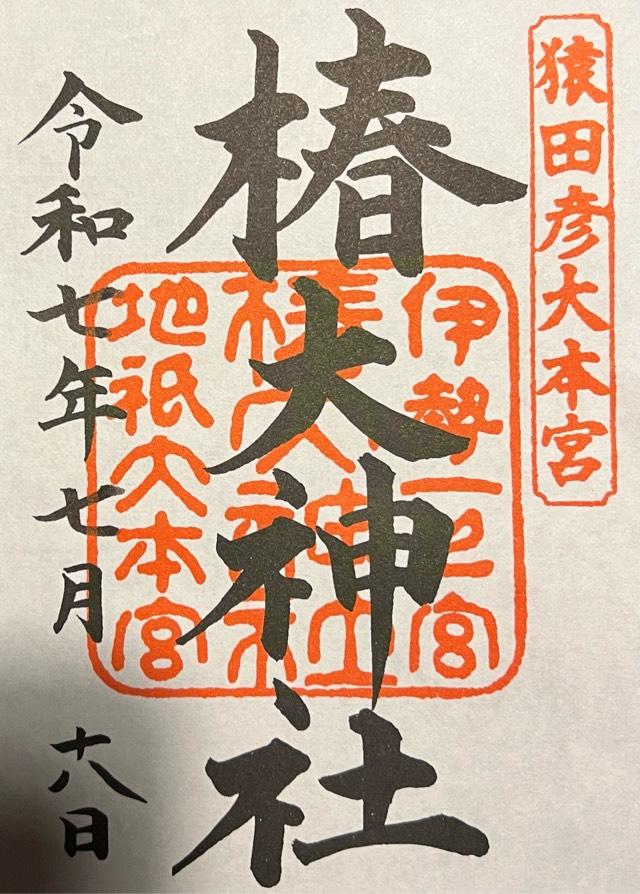 猿田彦大本宮
椿大神社
伊勢一之宮
椿大神社
地祇大本宮
令和七年七月十八日